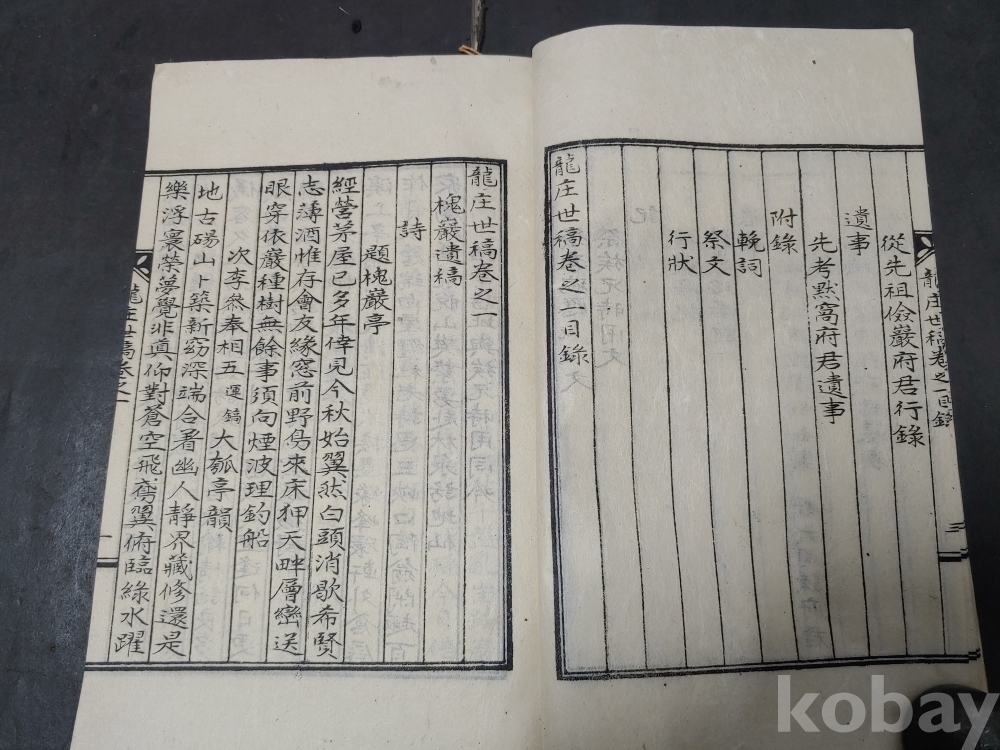 龍庄世稿卷之一目錄
從先祖儉巖府君行錄
遺事
先考默窩府君遺事
附錄
輓詞
祭文
行狀
龍庄世稿卷之一目錄
龍庄世稿卷之一
槐巖遺稿
詩
題槐巖亭
經營茅屋已多年倖見今秋始翼然白頭消歇希賢
志薄酒惟存會友緣窓前野鳥來床狎天畔層巒送
眼穿依巖種樹無餘事須向煙波理釣船
次李參奉相五運鎬大瓠亭韻
地古碭山卜築新窈深端合着幽人靜界藏修還是
樂浮寰榮夢覺非眞仰對蒼空飛鳶翼俯臨綠水躍
龍庄世稿卷之一
一
kobay